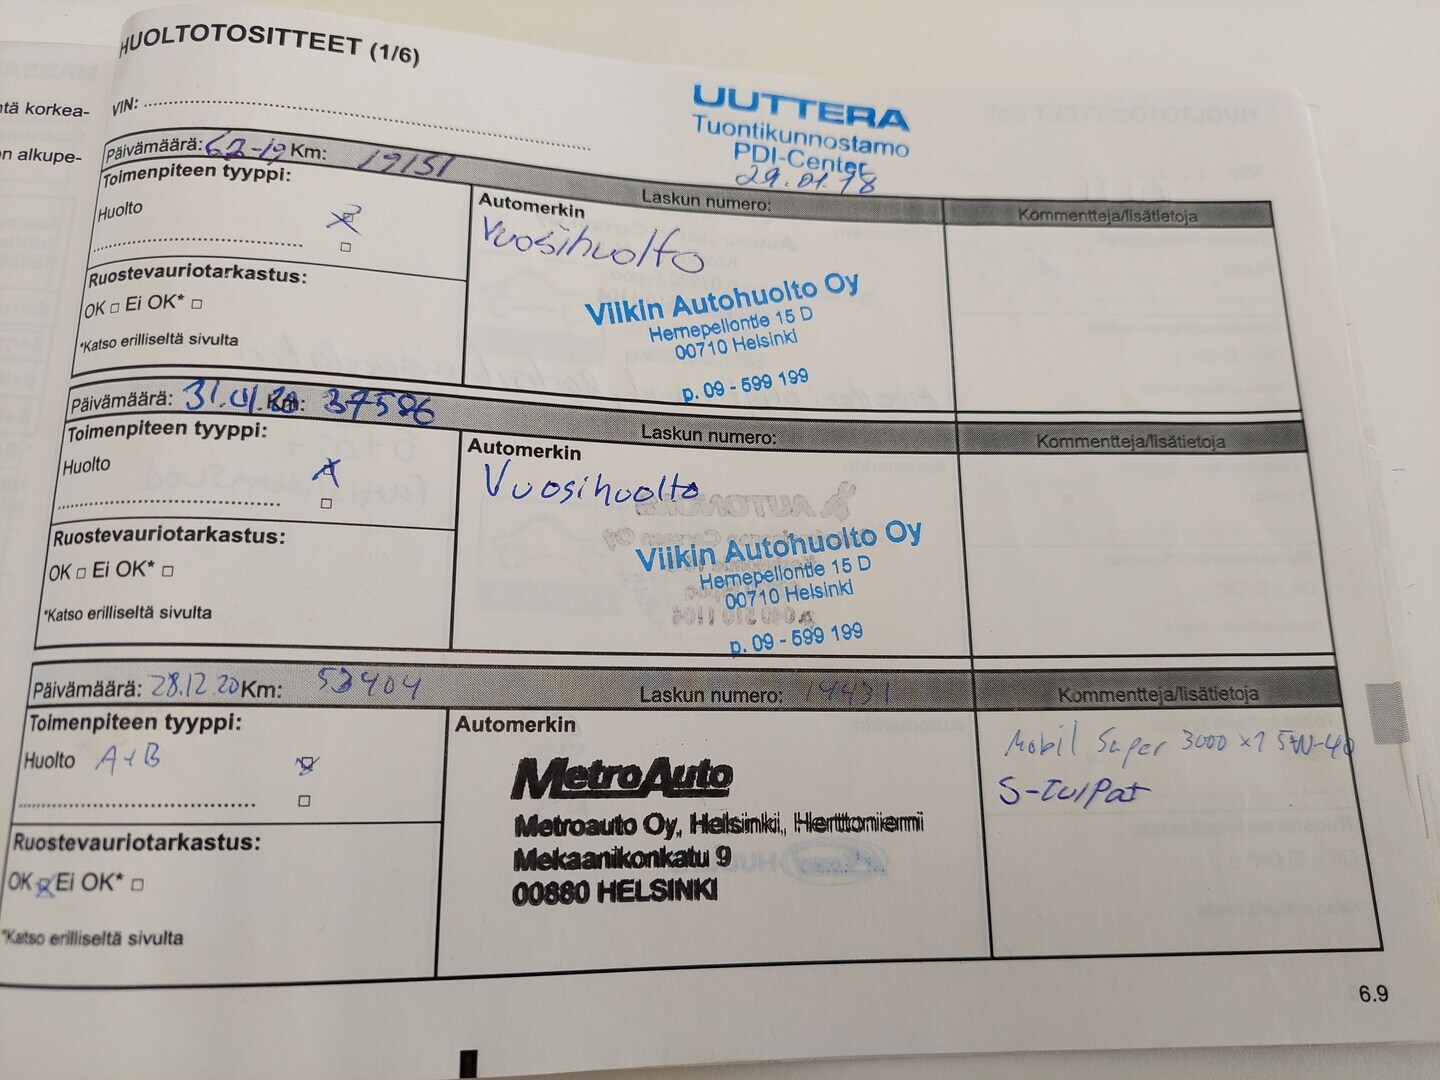 HUOLTOTOSITTEET (1/6)
ntä korkea-
n alkupe-
VIN:
UUTTERA
Tuontikunnostamo
PDI-Center
29.01.18
Päivämäärä: 6.2-19 Km: 19151
Laskun numero:
Kommentteja/lisätietoja
Toimenpiteen tyyppi:
Huolto
Automerkin
Vuosihuolto
Ruostevauriotarkastus:
OK □ Ei OK* □
*Katso erilliseltä sivulta
Viikin Autohuolto Oy
Hernepellontie 15 D
00710 Helsinki
p. 09 - 599 199
Päivämäärä: 31.01.20 Km: 37586
Laskun numero:
Kommentteja/lisätietoja
Toimenpiteen tyyppi:
Huolto
Automerkin
Vuosihuolto
Ruostevauriotarkastus:
OK □ Ei OK* □
*Katso erilliseltä sivulta
Viikin Autohuolto Oy
Hernepellontie 15 D
00710 Helsinki
p. 09 - 599 199
Päivämäärä: 28.12.20 Km: 53404
Laskun numero: 14431
Kommentteja/lisätietoja
Toimenpiteen tyyppi:
Huolto A+B
Automerkin
MetroAuto
Metroauto Oy, Helsinki, Herttoniemi
Mekaanikonkatu 9
00880 HELSINKI
Mobil Super 3000 x1 5W-40
S-tulpat
Ruostevauriotarkastus:
OK □ Ei OK* □
*Katso erilliseltä sivulta
6.9